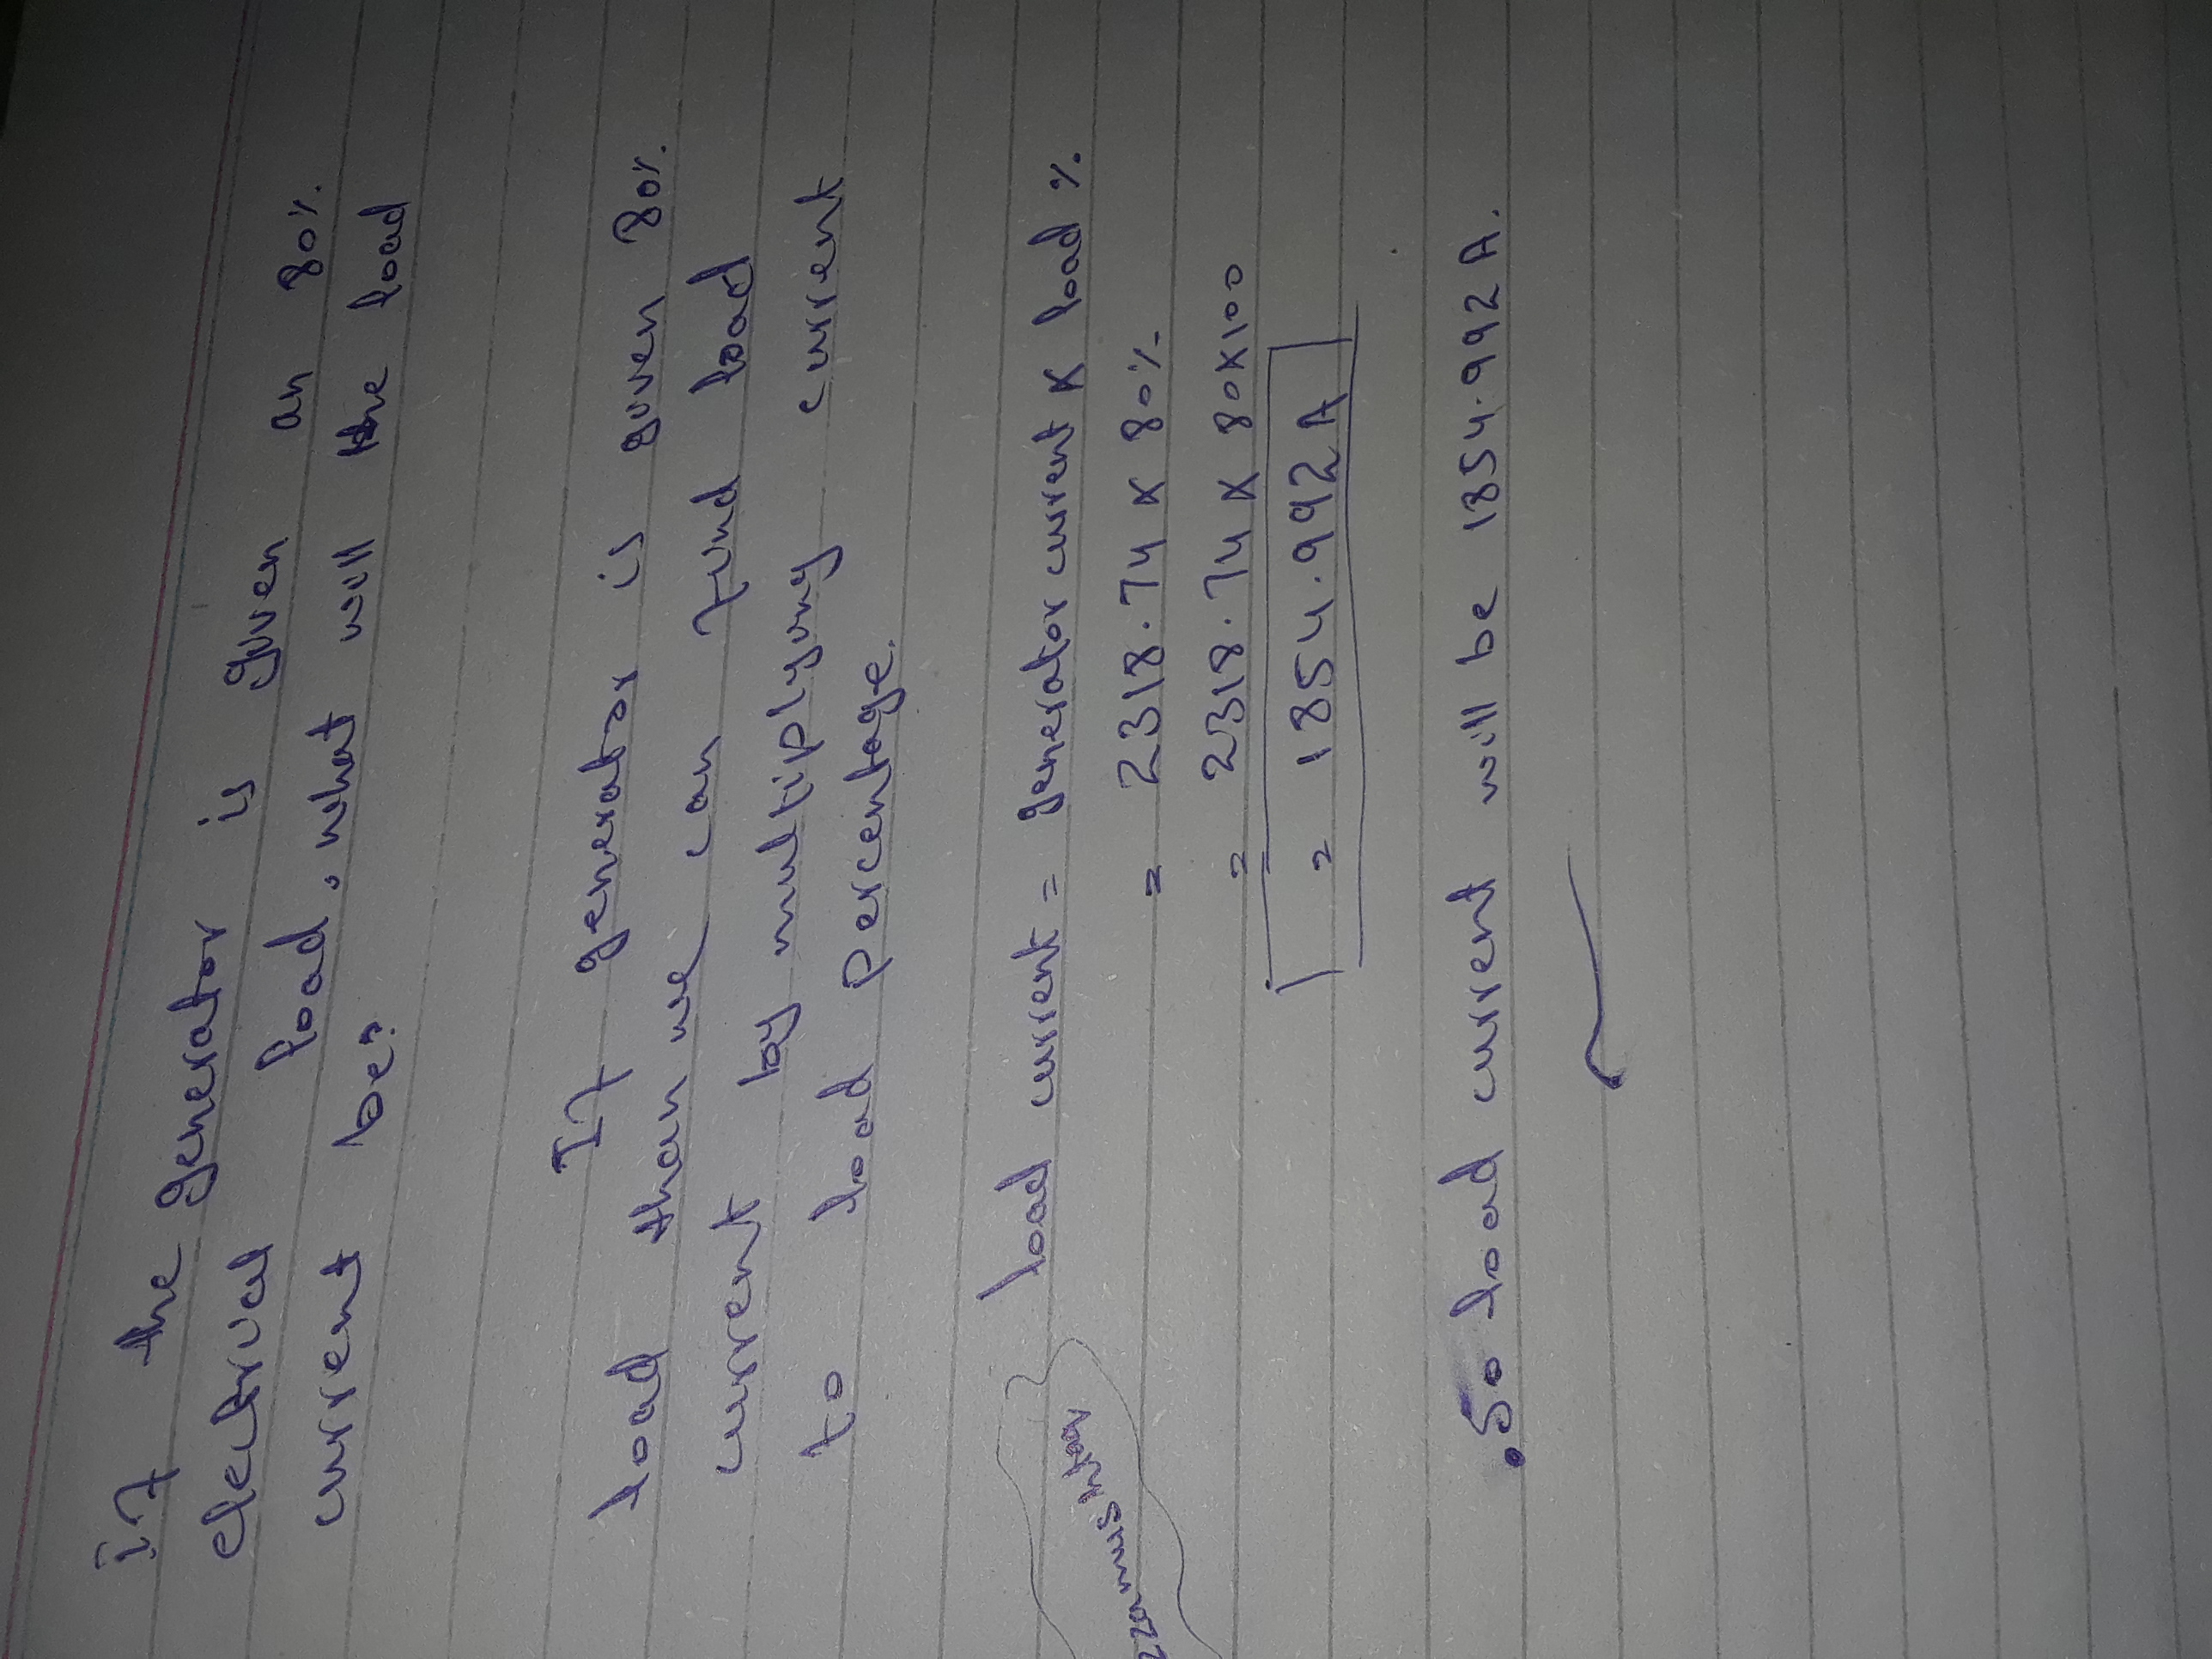 if the generator is given an 80%
electrical load, what will the load
current be?
If generator is given 80%
load then we can find load
current by multiplying current
to load percentage.
load current = generator current x load %
= 2318.74 x 80%
= 2318.74 x 80x100
= 1854.992A
So load current will be 1854.992A.